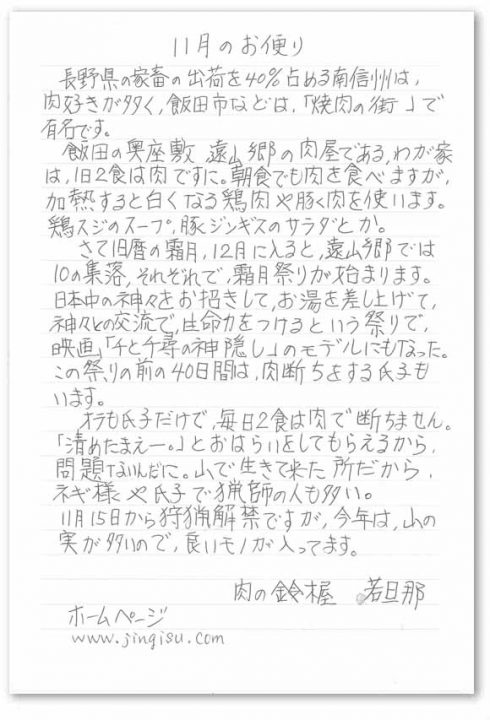 11月のお便り
長野県の家畜の出荷を40%占める南信州は、
肉好きが多く、飯田市などは、「焼肉の街」で
有名です。
飯田の奥座敷 遠山郷の肉屋である、わが家
は、1日2食は肉ですに。朝食でも肉を食べますが、
加熱すると白くなる鶏肉や豚肉を使います。
鶏スジのスープ、豚ジンギスのサラダとか。
さて旧暦の霜月、12月に入ると、遠山郷では
10の集落、それぞれで、霜月祭りが始まります。
日本中の神々をお招きして、お湯を差し上げて、
神々との交流で、生命力をつけるという祭りで、
映画「千と千尋の神隠し」のモデルにもなった。
この祭りの前の40日間は、肉断ちをする氏子も
います。
オラも氏子だけで、毎日2食は肉で断ちません。
「清めたまえー。」とおはらいをしてもらえるから、
問題ないんだに。山で生きて来た所だから、
ネギ様や氏子で猟師の人も多い。
11月15日から狩猟解禁ですが、今年は、山の
実が多いので、良いモノが入ってます。
肉の鈴木屋 若旦那
ホームページ
www.jingisu.com